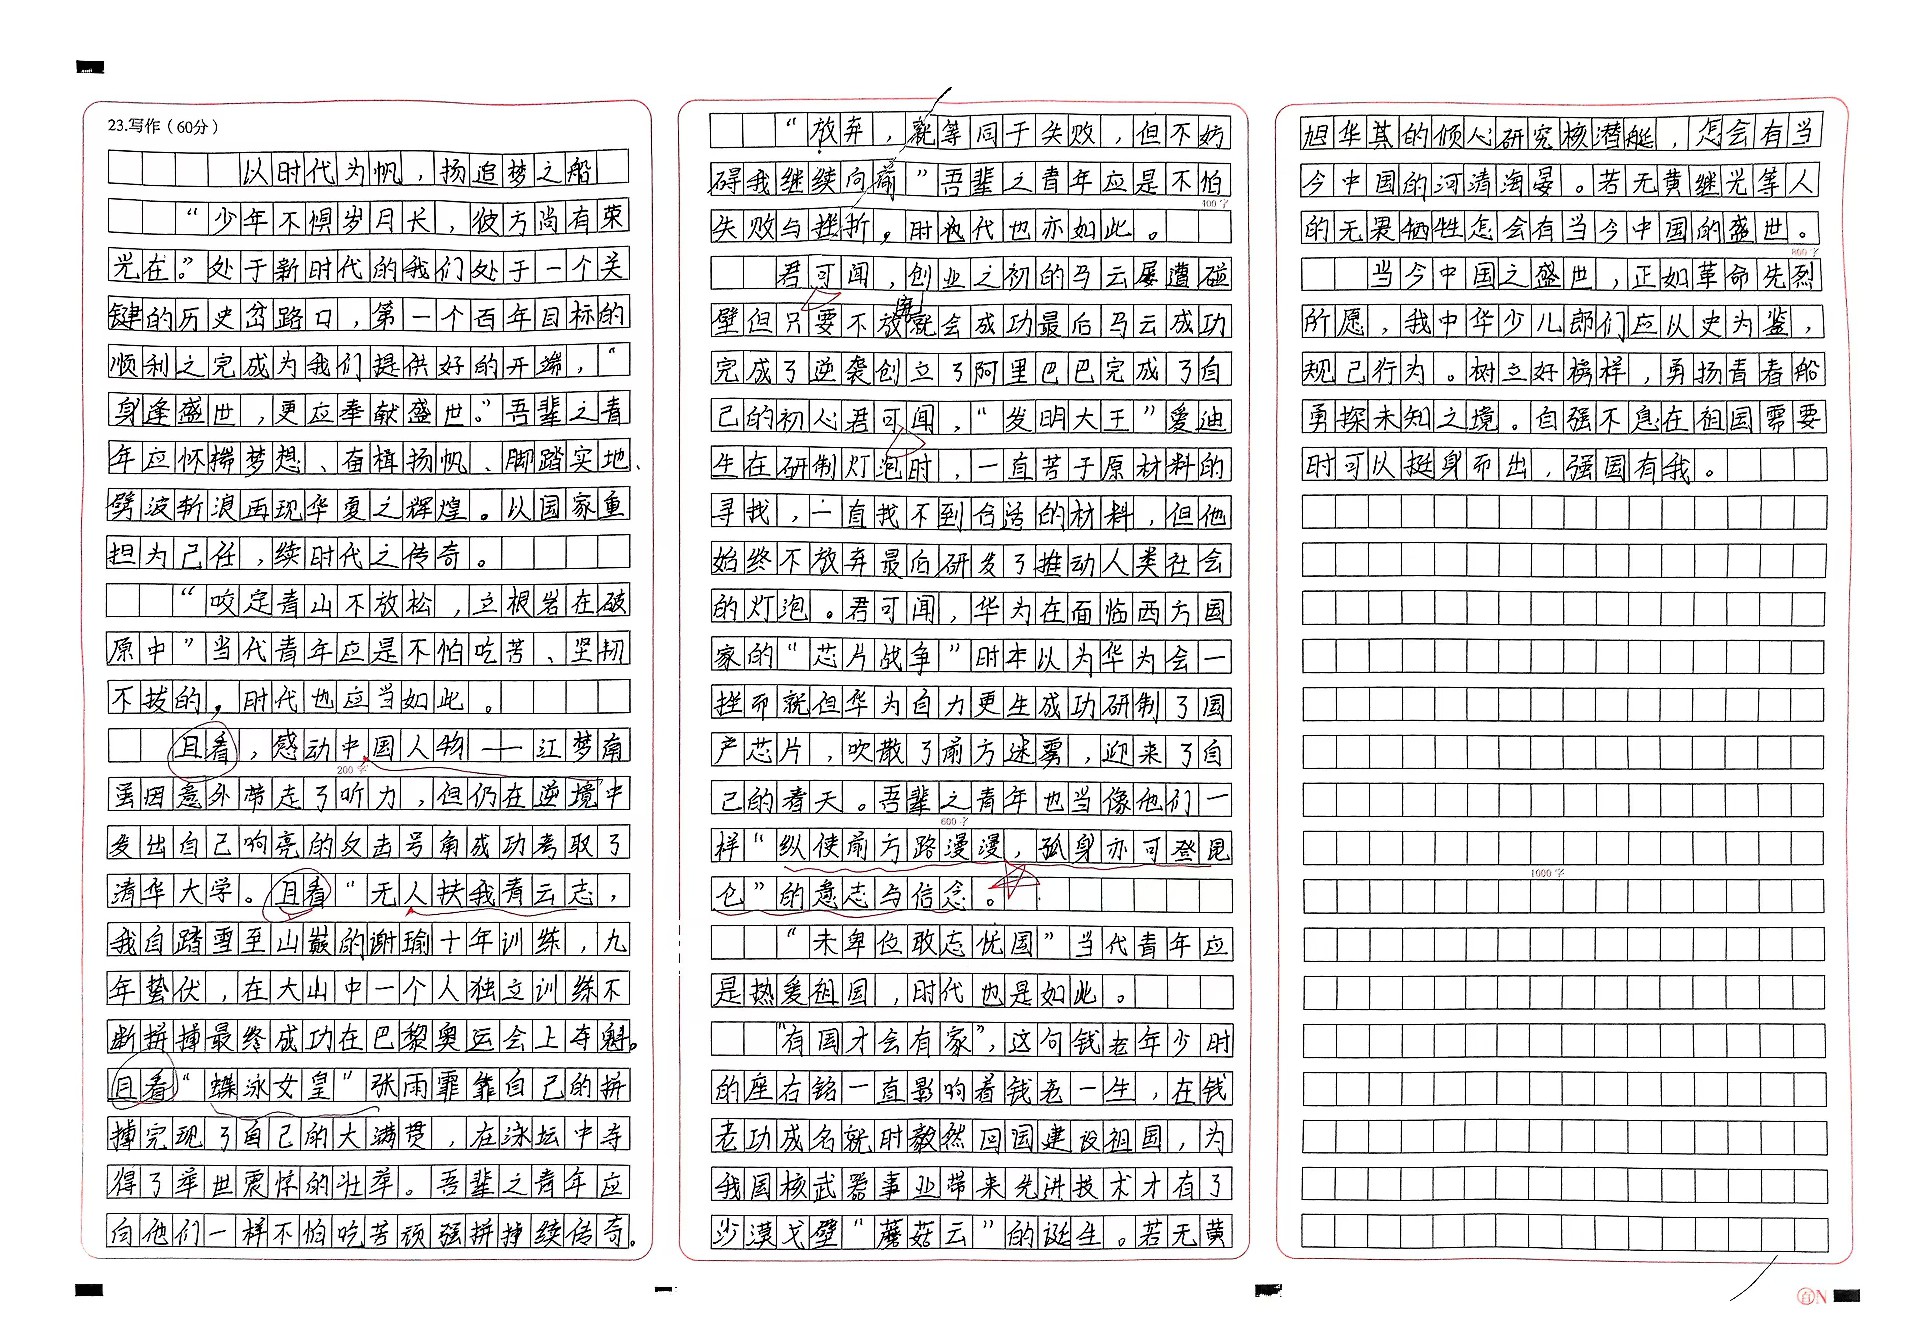 23.写作（60分）
以时代为帆，扬追梦之船
“少年不惧岁月长，彼方尚有荣
光在。”处于新时代的我们处于一个关
键的历史岔路口，第一个百年目标的
顺利之完成为我们提供好的开端，“
身逢盛世，更应奉献盛世。”吾辈之青
年应怀揣梦想、奋楫扬帆、脚踏实地、
劈波斩浪再现华夏之辉煌。以国家重
担为己任，续时代之传奇。
“咬定青山不放松，立根岩在破
原中”当代青年应是不怕吃苦、坚韧
不拔的，时代也应当如此。
且看，感动中国人物——江梦南
200字
虽因意外带走了听力，但仍在逆境中
发出自己响亮的反击号角成功考取了
清华大学。且看“无人扶我青云志，
我自踏雪至山巅的谢瑜十年训练，九
年蛰伏，在大山中一个人独立训练不
断拼搏最终成功在巴黎奥运会上夺魁。
且看“蝶泳女皇”张雨霏靠自己的拼
搏完现了自己的大满贯，在泳坛中夺
得了举世震惊的壮举。吾辈之青年应
向他们一样不怕吃苦顽强拼搏续传奇。
“放弃，就等同于失败，但不妨
碍我继续向前”吾辈之青年应是不怕
400字
失败与挫折，时代也亦如此。
君可闻，创业之初的马云屡遭碰
壁但只要不放弃就会成功最后马云成功
完成了逆袭创立了阿里巴巴完成了自
己的初心君可闻，“发明大王”爱迪
生在研制灯泡时，一直苦于原材料的
寻找，一直找不到合适的材料，但他
始终不放弃最后研发了推动人类社会
的灯泡。君可闻，华为在面临西方国
家的“芯片战争”时本以为华为会一
挫而就但华为自力更生成功研制了国
产芯片，吹散了前方迷雾，迎来了自
己的春天。吾辈之青年也当像他们一
600字
样“纵使前方路漫漫，孤身亦可登昆
仑”的意志与信念。
“未卑位敢忘忧国”当代青年应
是热爱祖国，时代也是如此。
“有国才会有家”，这句钱老年少时
的座右铭一直影响着钱老一生，在钱
老功成名就时毅然回国建设祖国，为
我国核武器事业带来先进技术才有了
沙漠戈壁“蘑菇云”的诞生。若无黄
旭华其的倾心研究核潜艇，怎会有当
今中国的河清海晏。若无黄继光等人
的无畏牺牲怎会有当今中国的盛世。
800字
当今中国之盛世，正如革命先烈
所愿，我中华少儿郎们应以史为鉴，
规己行为。树立好榜样，勇扬青春船
勇探未知之境。自强不息在祖国需要
时可以挺身而出，强国有我。
1000字